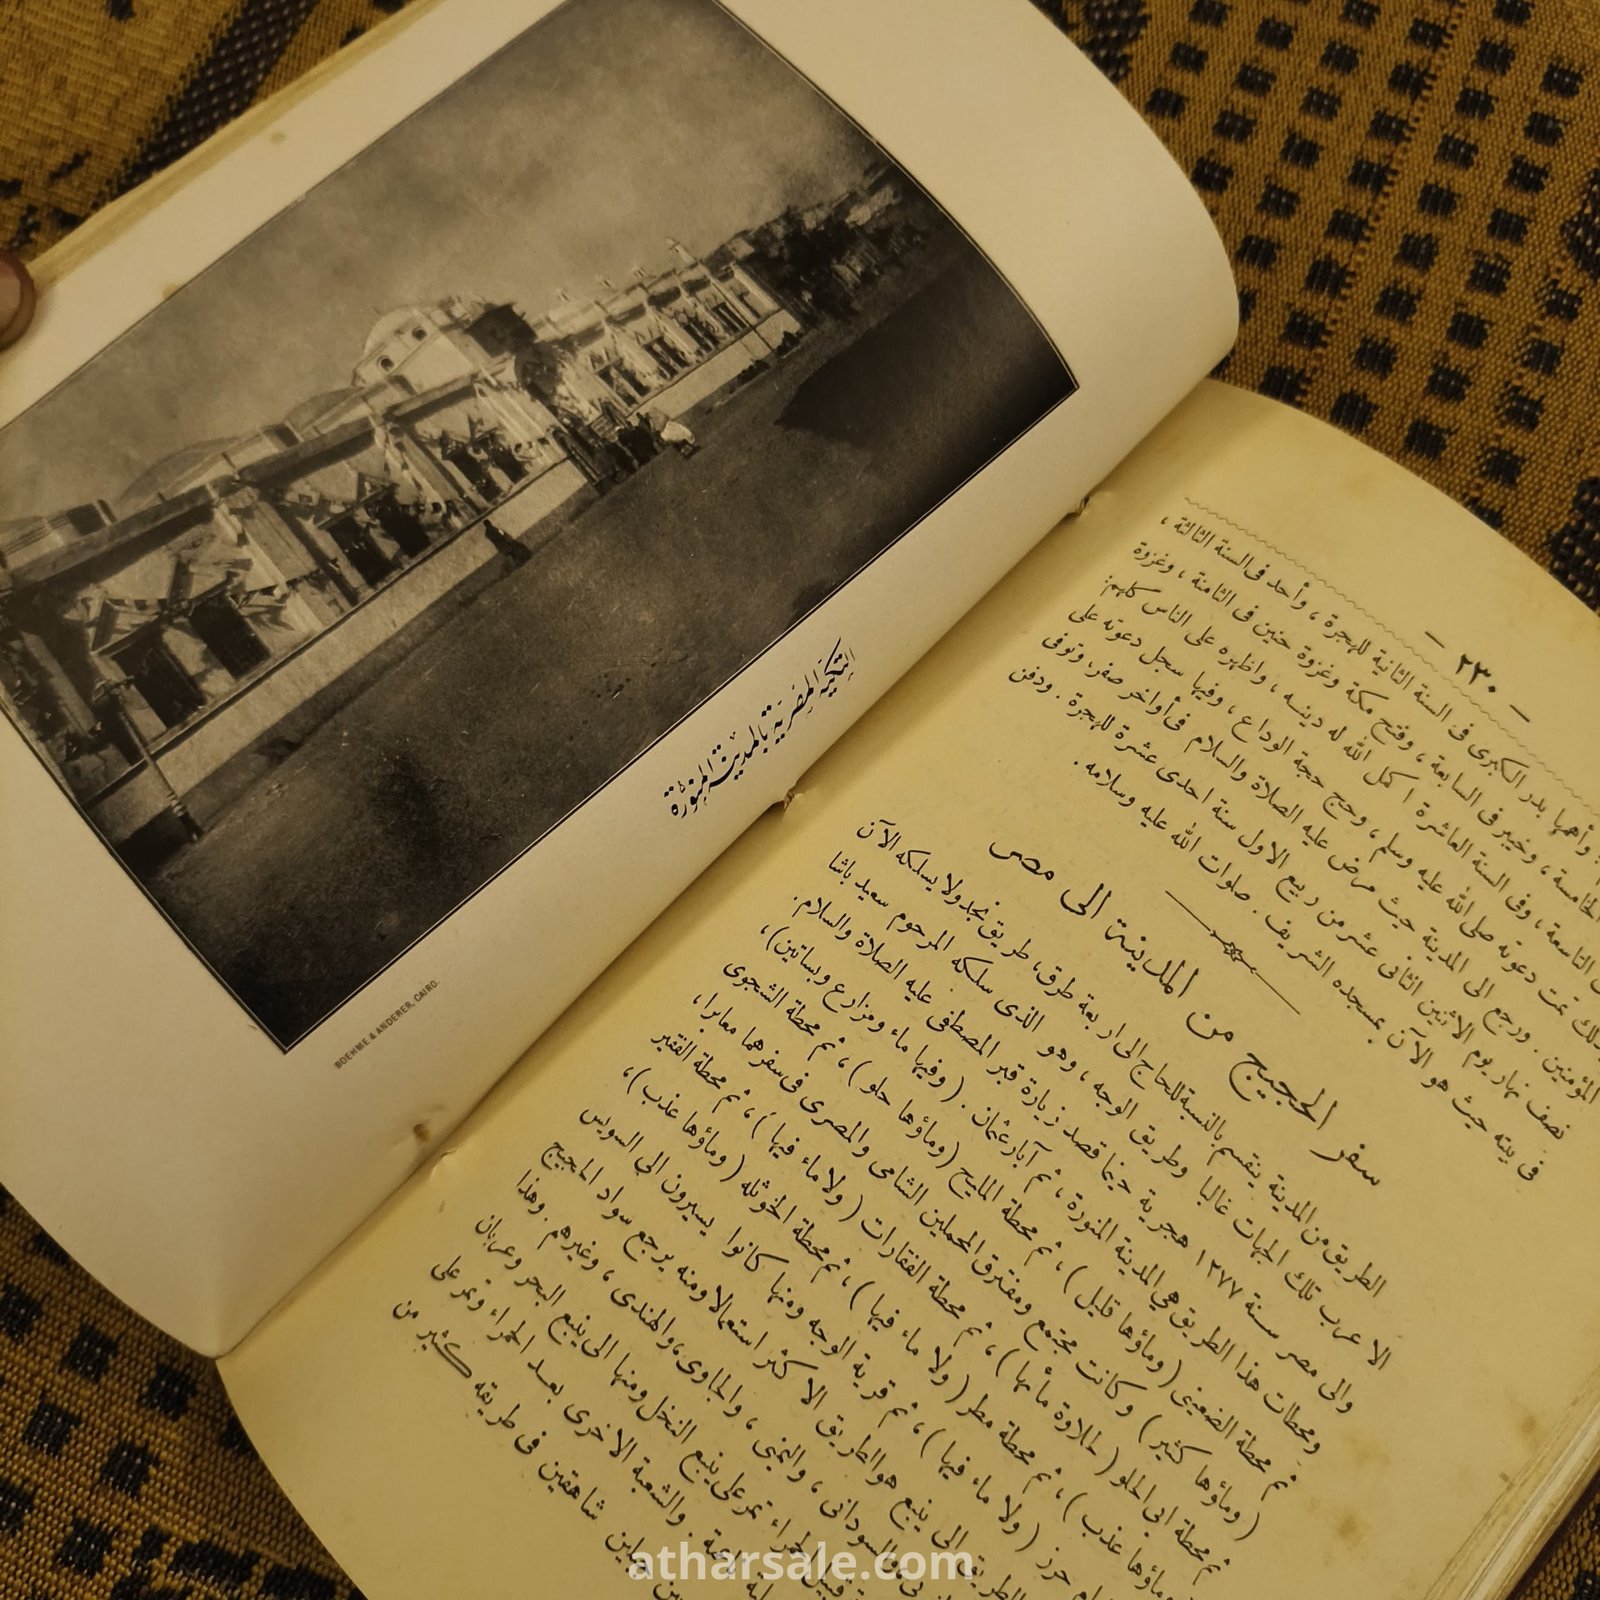 التكية المصرية بالمدينة المنورة
BOEHME & ANDERER, CAIRO.
— ٢٣٠ —
وأهمها بدر الكبرى فى السنة الثانية للهجرة ، وأحد فى السنة الثالثة ،
الخامسة ، وخيبر فى السابعة ، وفتح مكة وغزوة حنين فى الثامنة ، وغزوة
التاسعة ، وفى السنة العاشرة اكمل الله له دينه ، واظهره على الناس كلهم :
تمت دعوته صلى الله عليه وسلم ، وحج حجة الوداع ، وفيها سجل دعوته على
المؤمنين . ورجع الى المدينة حيث مرض عليه الصلاة والسلام فى أواخر صفر، وتوفى
نصف نهار يوم الاثنين الثانى عشر من ربيع الاول سنة احدى عشرة للهجرة . ودفن
فى بيته حيث هو الآن بمسجده الشريف . صلوات الله عليه وسلامه .
سفر الحجيج من المدينة الى مصر
الطريق من المدينة ينقسم بالنسبة للحاج الى اربعة طرق، طريق نجد ولا يسلكه الآن
الا عرب تلك الجهات غالبا وطريق الوجه ، وهو الذى سلكه المرحوم سعيد باشا
والى مصر سنة ١٢٧٧ هجرية حينما قصد زيارة قبر المصطفى عليه الصلاة والسلام.
ومحطات هذا الطريق هى المدينة المنورة ، ثم آبار عثمان . ( وفيها ماء ومزارع وبساتين)،
ثم محطة الضعينى (وماؤها قليل ) ، ثم محطة المليح (وماؤها حلو ) ، ثم محطة الشجوى
( وماؤها كثير ) وكانت مجتمع ومفترق المحملين الشامى والمصرى فى سفرهما معابرا ،
ثم محطة ابى الحلو ( لحلاوة مائها ) ، ثم محطة الفقارات ( ولا ماء فيها ) ، ثم محطة الفقير
( وماؤها عذب ) ، ثم محطة مطر ( ولا ماء فيها ) ، ثم محطة الخوثله ( وماؤها عذب ) ،
حرز ( ولا ماء فيها ) ، ثم قرية الوجه ومنها كانوا يسيرون الى السويس
الطريق الى ينبع هو الطريق الاكثر استعمالا ومنه يرجع سواد الحجيج
والسودانى ، واليمنى ، والجاوى، والهندى ، وغيرهم . وهذا
الحمراء تمر على ينبع النخل ومنها الى ينبع البحر وعربان
والشعبة الاخرى بعد الحمراء وتمر على
شاهقين فى طريقه كثير من
atharsale.com